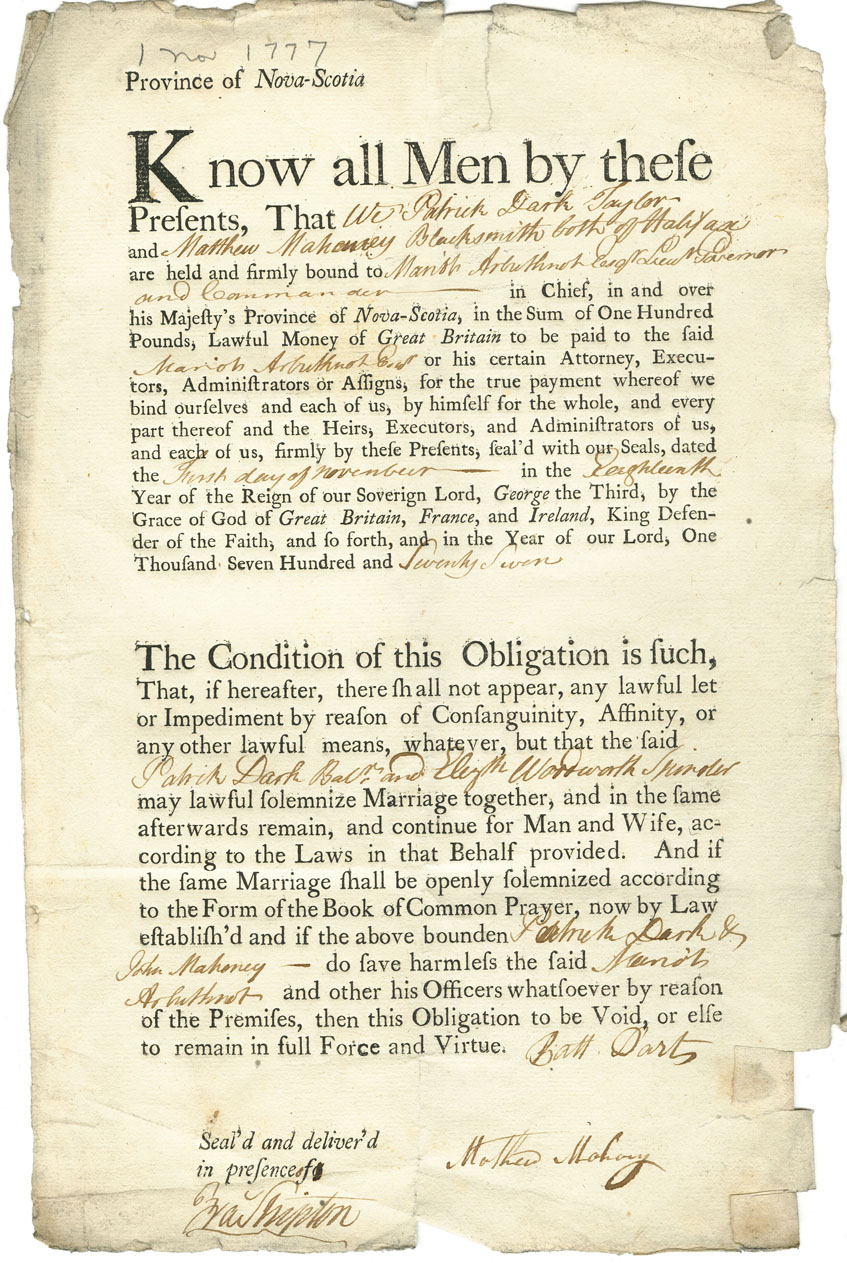 1 Nov 1777
Province of Nova-Scotia
Know all Men by theſe
Preſents, That We Patrick Dark Taylor
and Matthew Mahoney Blacksmith both of Halifax
are held and firmly bound to Mariot Arbuthnot Esqr Lieut Governor
and Commander in Chief, in and over
his Majeſty's Province of Nova-Scotia, in the Sum of One Hundred
Pounds, Lawful Money of Great Britain to be paid to the ſaid
Mariot Arbuthnot Esqr or his certain Attorney, Execu-
tors, Adminiſtrators or Aſſigns, for the true payment whereof we
bind ourſelves and each of us, by himſelf for the whole, and every
part thereof and the Heirs, Executors, and Adminiſtrators of us,
and each of us, firmly by theſe Preſents, ſeal'd with our Seals, dated
the First day of November in the Eighteenth
Year of the Reign of our Soverign Lord, George the Third, by the
Grace of God of Great Britain, France, and Ireland, King Defen-
der of the Faith, and ſo forth, and in the Year of our Lord, One
Thouſand Seven Hundred and Seventy Seven
The Condition of this Obligation is ſuch,
That, if hereafter, there ſhall not appear, any lawful let
or Impediment by reaſon of Conſanguinity, Affinity, or
any other lawful means, whatever, but that the ſaid
Patrick Dark Batr. and Elizth Wordworth Spinster
may lawful ſolemnize Marriage together, and in the ſame
afterwards remain, and continue for Man and Wife, ac-
cording to the Laws in that Behalf provided. And if
the ſame Marriage ſhall be openly ſolemnized according
to the Form of the Book of Common Prayer, now by Law
eſtabliſh'd and if the above bounden Patrick Dark &
John Mahoney do ſave harmleſs the ſaid Mariot
Arbuthnot and other his Officers whatſoever by reaſon
of the Premiſes, then this Obligation to be Void, or elſe
to remain in full Force and Virtue.
Patt Dart
Seal'd and deliver'd
in preſence of
Mathew Mahony